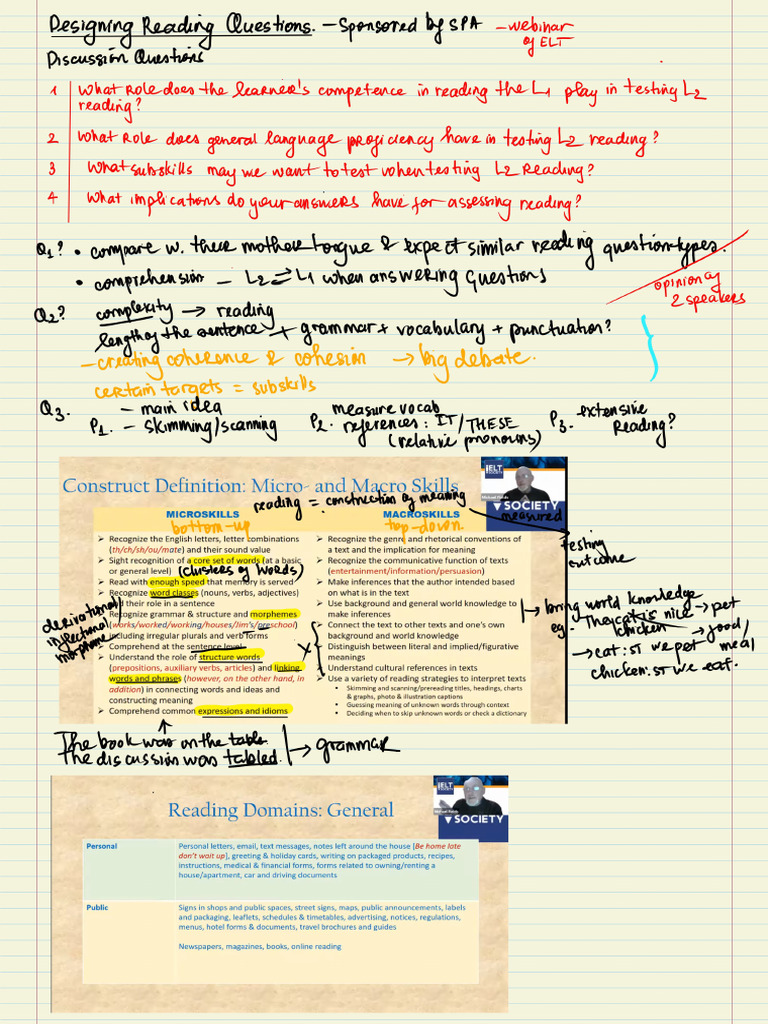 Designing Reading Questions. – Sponsored by SPA – webinar of ELT
Discussion Questions
1 What Role does the learner's competence in reading the L1 play in testing L2 reading?
2 What Role does general language proficiency have in testing L2 reading?
3 What subskills may we want to test when testing L2 Reading?
4 What implications do your answers have for assessing reading?
Q1? • compare w. their mother tongue & expect similar reading question types.
• comprehension – L2 ⇌ L1 when answering Questions
opinion of 2 speakers
Q2? complexity → reading
length of the sentence + grammar + vocabulary + punctuation?
– creating coherence & cohesion → big debate.
certain targets = subskills
Q3. – main idea
P1. – skimming/scanning
measure vocab
P2. references: IT/THESE
(relative pronouns)
P3. extensive Reading?
Construct Definition: Micro- and Macro Skills
IELT SOCIETY
SOCIETY
reading = construction of meaning
measured
testing outcome
MICROSKILLS
bottom-up
➢ Recognize the English letters, letter combinations
(th/ch/sh/ou/mate) and their sound value
➢ Sight recognition of a core set of words (at a basic
or general level) (clusters of words)
➢ Read with enough speed that memory is served
➢ Recognize word classes (nouns, verbs, adjectives)
and their role in a sentence
Recognize grammar & structure and morphemes
(works/worked/working/houses/Jim's/preschool)
including irregular plurals and verb forms
➢ Comprehend at the sentence level
➢ Understand the role of structure words
(prepositions, auxiliary verbs, articles) and linking
words and phrases (however, on the other hand, in
addition) in connecting words and ideas and
constructing meaning
➢ Comprehend common expressions and idioms
derivational/
inflectional
morpheme
MACROSKILLS
top-down
➢ Recognize the genre and rhetorical conventions of
a text and the implication for meaning
➢ Recognize the communicative function of texts
(entertainment/information/persuasion)
➢ Make inferences that the author intended based
on what is in the text
➢ Use background and general world knowledge to
make inferences
➢ Connect the text to other texts and one's own
background and world knowledge
➢ Distinguish between literal and implied/figurative
meanings
➢ Understand cultural references in texts
➢ Use a variety of reading strategies to interpret texts
▪ Skimming and scanning/prereading titles, headings, charts
& graphs, photo & illustration captions
▪ Guessing meaning of unknown words through context
▪ Deciding when to skip unknown words or check a dictionary
→ bring world knowledge
eg. The cat is nice → pet
chicken → food/meal
→ cat: ST we pet
chicken: ST we eat.
The book was on the table.
The discussion was tabled. → grammar
Reading Domains: General
SOCIETY
Personal
Personal letters, email, text messages, notes left around the house [Be home late
don't wait up], greeting & holiday cards, writing on packaged products, recipes,
instructions, medical & financial forms, forms related to owning/renting a
house/apartment, car and driving documents
Public
Signs in shops and public spaces, street signs, maps, public announcements, labels
and packaging, leaflets, schedules & timetables, advertising, notices, regulations,
menus, hotel forms & documents, travel brochures and guides
Newspapers, magazines, books, online reading